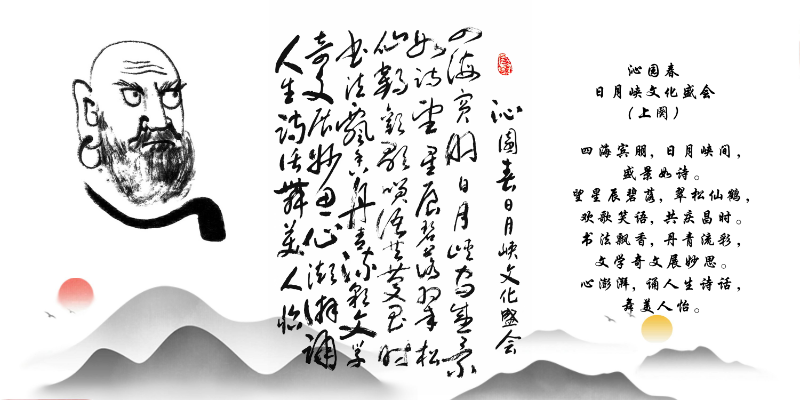 沁园春
日月峡文化盛会
（上阕）
四海宾朋，日月峡间，
盛景如诗。
望星辰碧落，翠松仙鹤，
欢歌笑语，共庆昌时。
书法飘香，丹青流彩，
文学奇文展妙思。
心澎湃，诵人生诗话，
舞美人怡。
沁園春日月峡文化盛会
四海宾朋日月峡间盛景
如诗望星辰碧落翠松
仙鹤歡歌笑语共庆昌时
书法飘香丹青流彩文学
奇文展妙思心澎湃诵
人生诗话舞美人怡